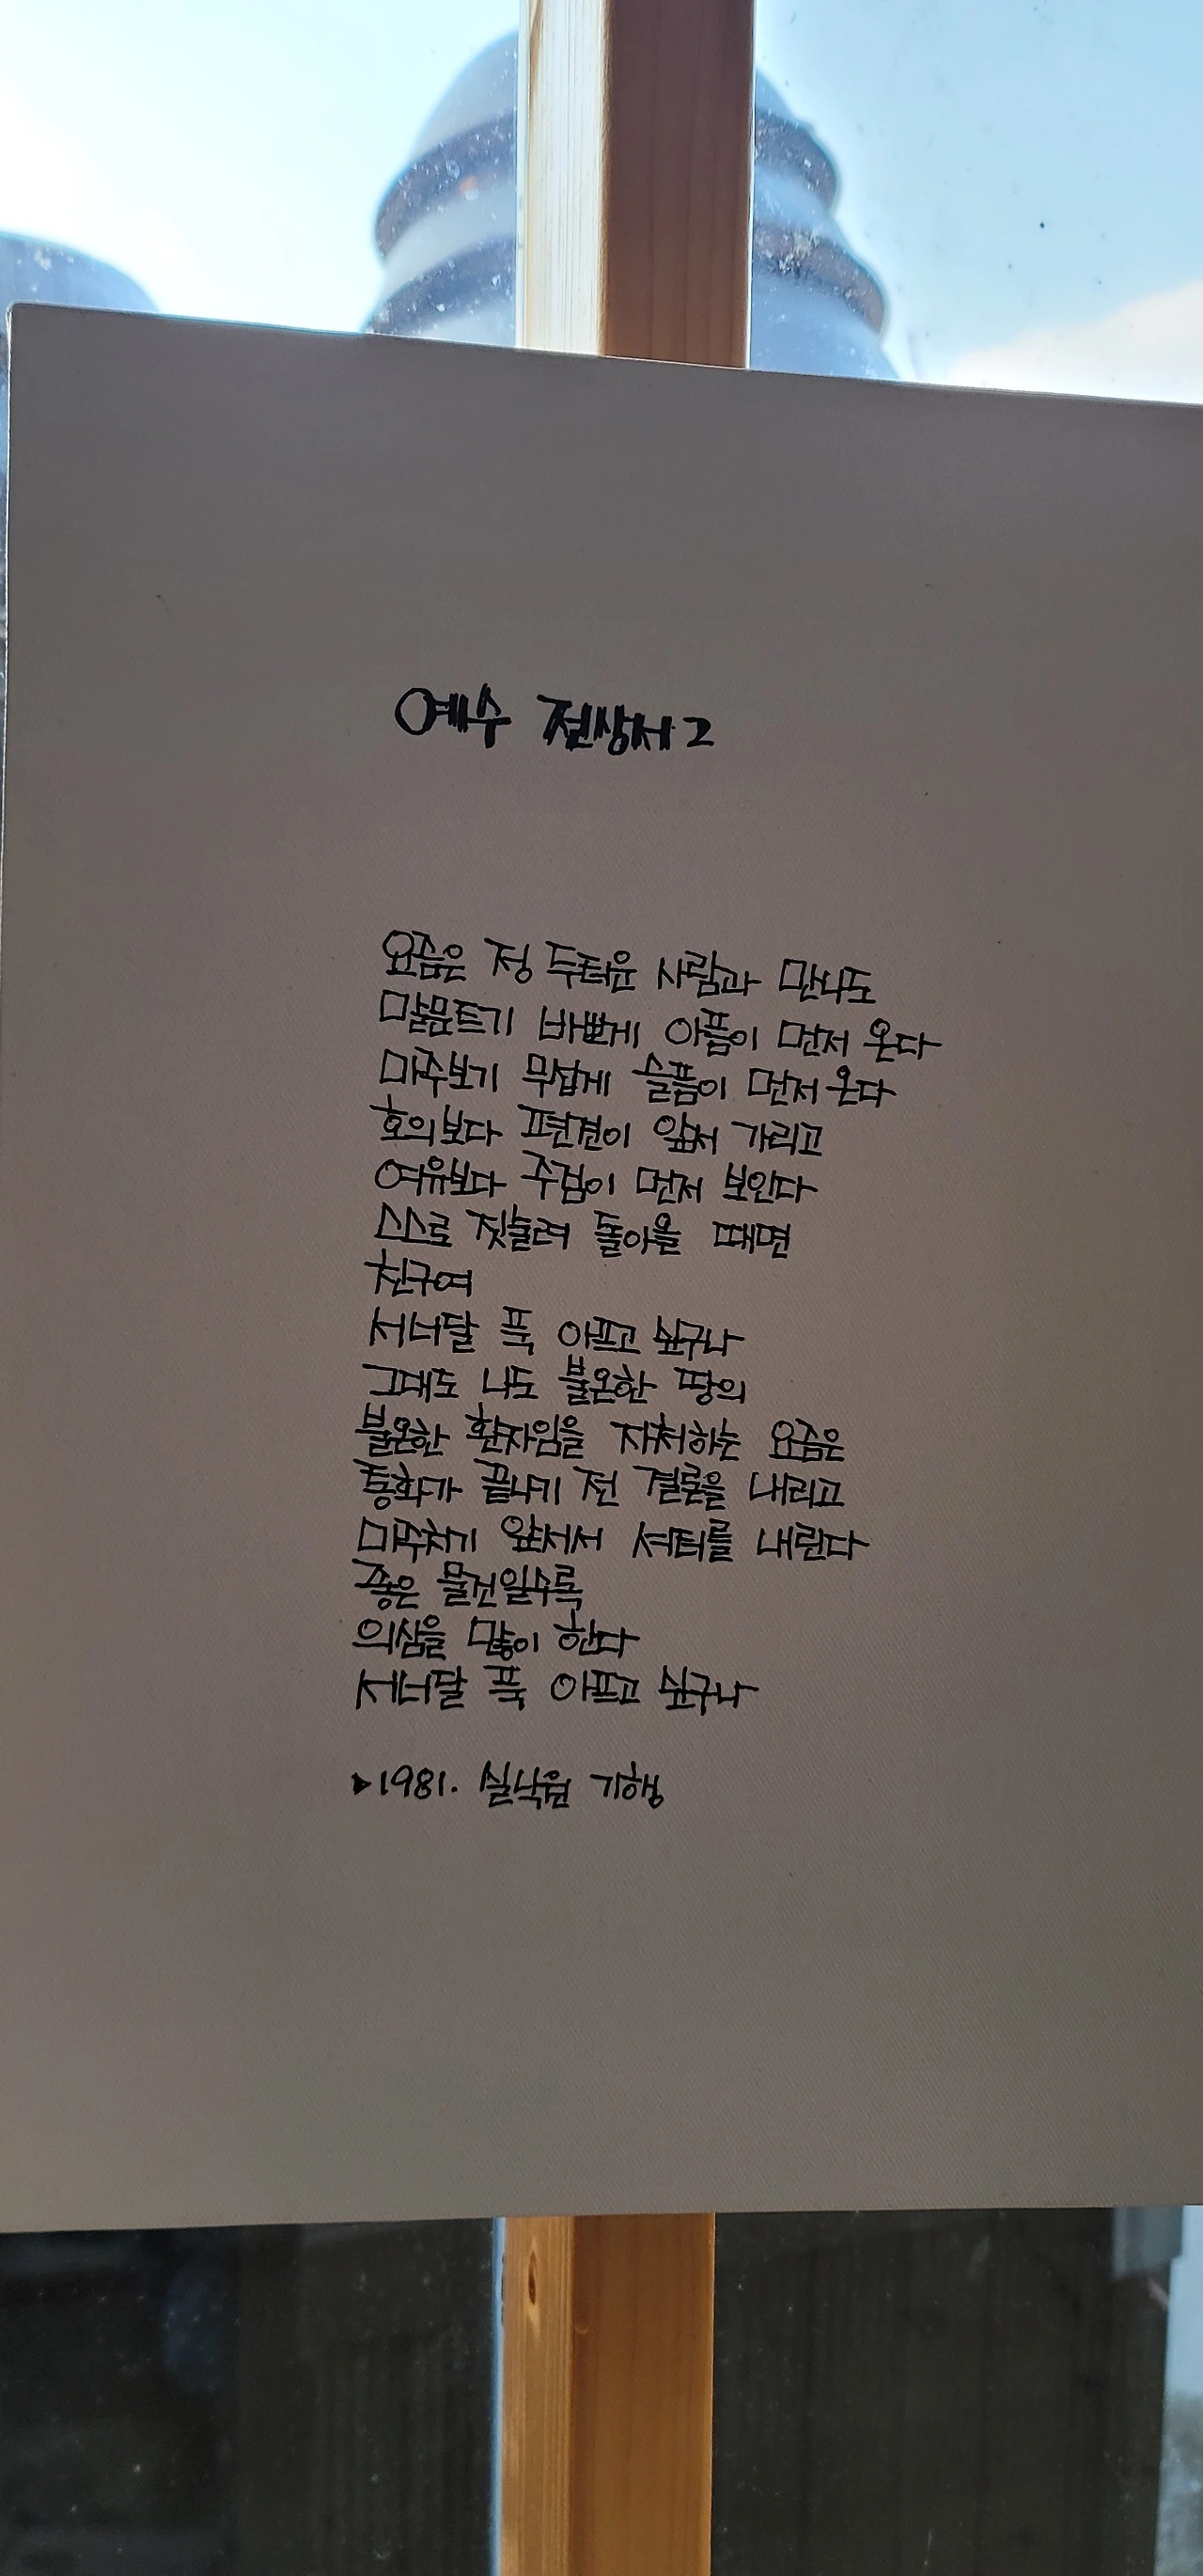 예수 전상서 2
요즘은 정 두터운 사람과 만나도
말문트기 바쁘게 아픔이 먼저 온다
마주보기 무섭게 슬픔이 먼저 온다
호의보다 편견이 앞서 가리고
여유보다 주검이 먼저 보인다
스스로 짓눌려 돌아올 때면
친구여
서너달 푹 아프고 싶구나
그대도 나도 불온한 땅의
불온한 환자임을 자처하는 요즘은
통화가 끝나기 전 결론을 내리고
마주치기 앞서서 셔터를 내린다
좋은 물건일수록
의심을 많이 한다
서너달 푹 아프고 싶구나
▶1981. 실낙원 기행